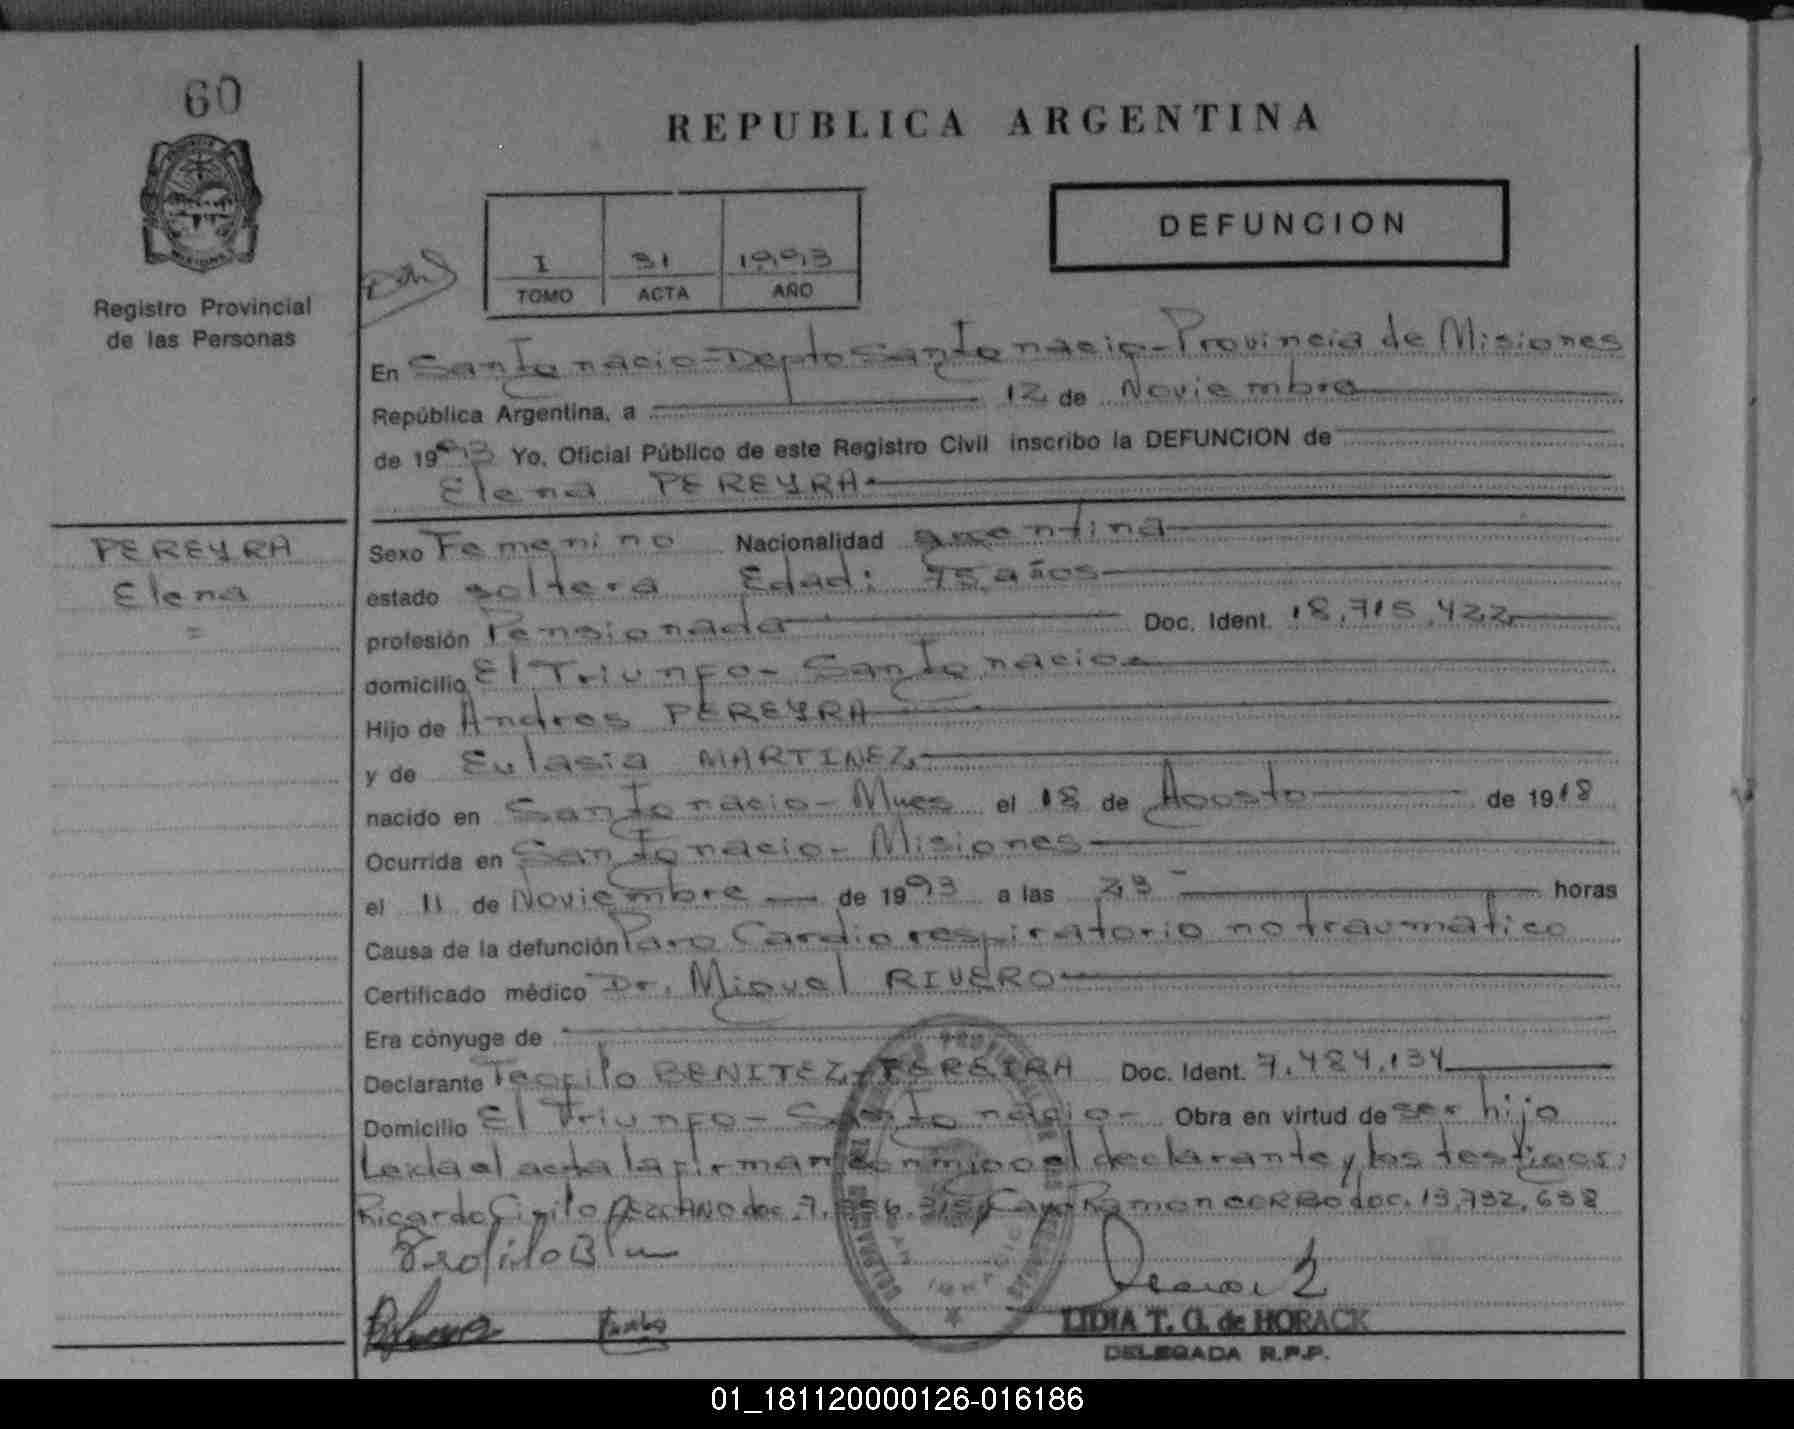 60
REPUBLICA ARGENTINA
DEFUNCION
I 31 1993
TOMO ACTA AÑO
Registro Provincial
de las Personas
En San Ignacio-Depto San Ignacio-Provincia de Misiones
República Argentina, a 12 de Noviembre
de 1993 Yo, Oficial Público de este Registro Civil inscribo la DEFUNCION de
Elena PEREYRA
PEREYRA
Elena
Sexo Femenino Nacionalidad argentina
estado soltera Edad: 75 años
profesión Pensionada Doc. Ident. 18.715.422
domicilio El Triunfo - San Ignacio
Hijo de Andres PEREYRA
y de Eulasia MARTINEZ
nacido en San Ignacio - Mnes el 18 de Agosto de 1918
Ocurrida en San Ignacio - Misiones
el 11 de Noviembre de 1993 a las 23 horas
Causa de la defunción Paro Cardio respiratorio no traumatico
Certificado médico Dr. Miguel RIVERO
Era cónyuge de
Declarante Teofilo BENITEZ PEREYRA Doc. Ident. 7.484.134
Domicilio El Triunfo - San Ignacio - Obra en virtud de ser hijo
Leida el acta la firman conmigo el declarante y los testigos:
Ricardo Cirilo doc. 7. Ramon doc. 13.732.638
Teofilo
LIDIA T. G. de HORACK
DELEGADA R.P.P.
01_181120000126-016186